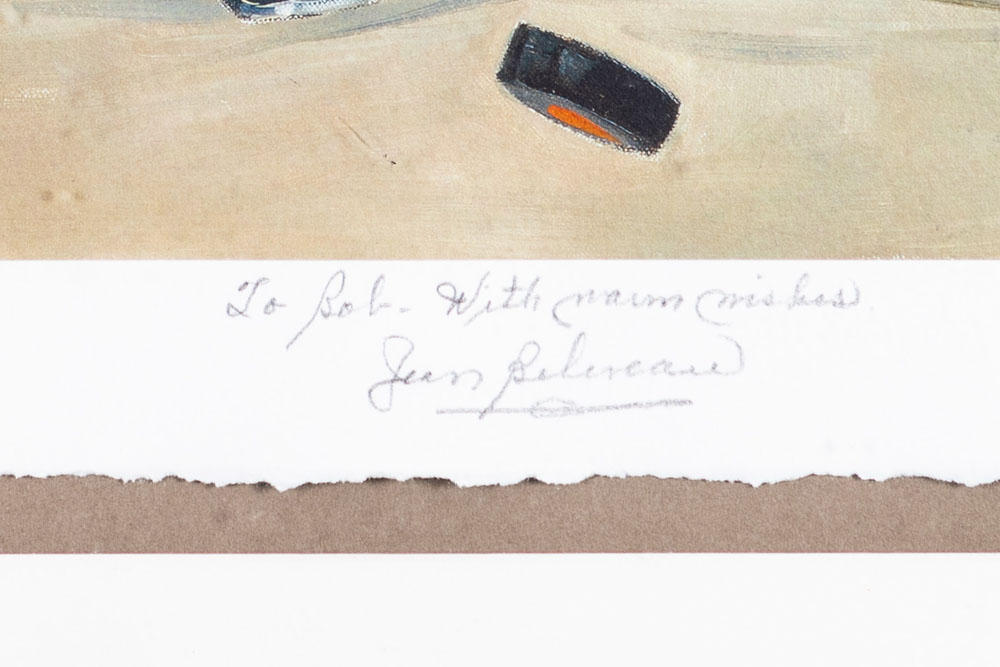 To Bob - With warm wishes
Jean Beliveau